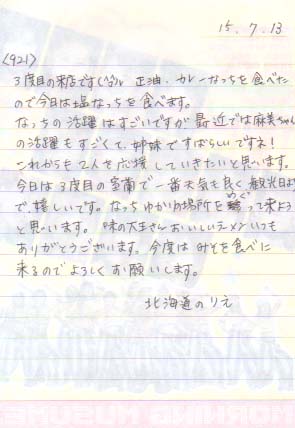 15.7.13
(921)
3度目の来店です(^^)ﾉﾚ 正油、カレーなっちを食べた
ので今日は塩なっちを食べます。
なっちの活躍はすごいですが最近では麻美ちゃん
の活躍もすごくて、姉妹ですばらしいですネ!
これからも2人を応援していきたいと思います。
今日は3度目の室蘭で一番天気も良く観光日より
で、嬉しいです。なっちゆかりの場所を巡って来よう
と思います。味の大王さんおいしいラーメンいつも
ありがとうございます。今度はみそを食べに
来るのでよろしくお願いします。
北海道のりえ
MORNING MUSUME